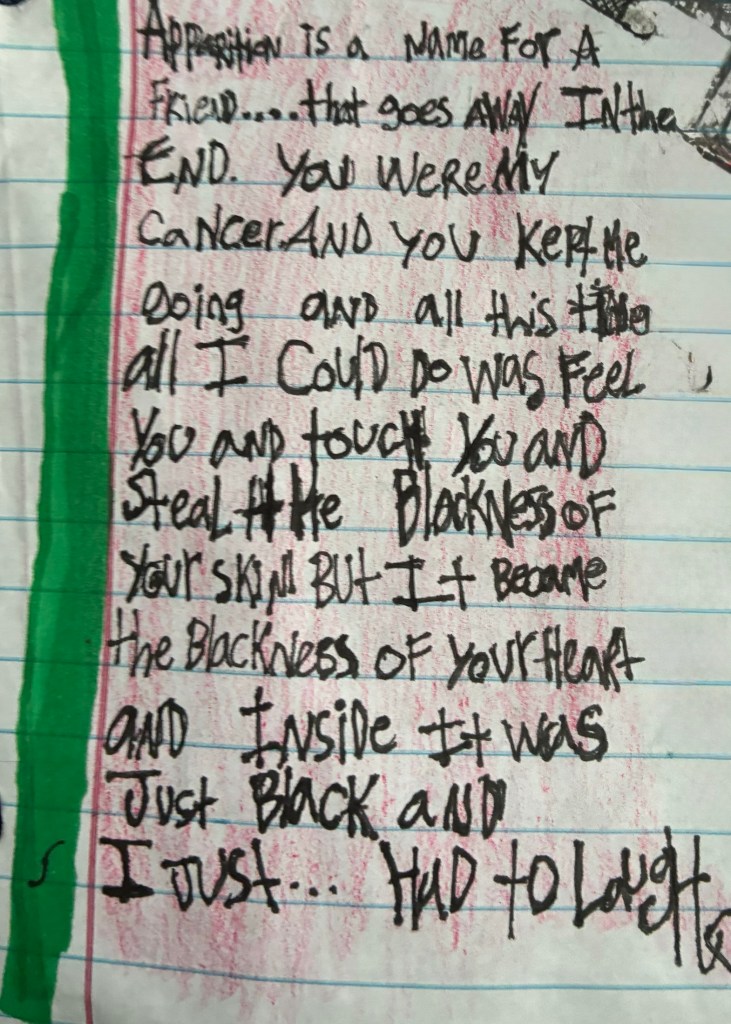 Apparition is a Name For A
Friend.....that goes AWAY In the
END. You WERE MY
CaNcer. AND you KEpt Me
going and all this time
all I Could Do Was Feel
You and touch You AND
Steal the Blackness OF
Your SKiN But It Became
the BlackNess OF your Heart
AND Inside It was
Just Black aND
I JUST... HAD to LaugH